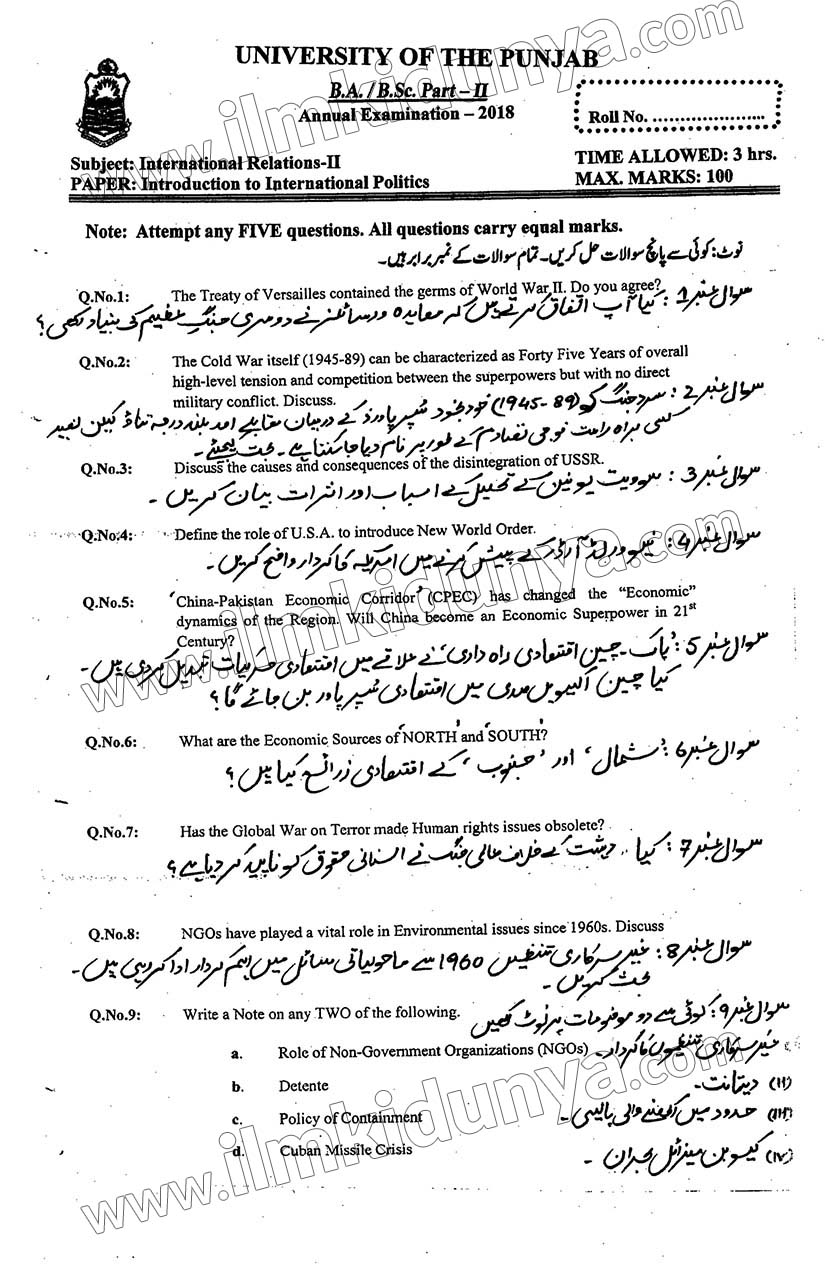 UNIVERSITY OF THE PUNJAB
B.A. / B.Sc. Part – II
Annual Examination – 2018
Roll No. ......................
Subject: International Relations-II
PAPER: Introduction to International Politics
TIME ALLOWED: 3 hrs.
MAX. MARKS: 100
Note: Attempt any FIVE questions. All questions carry equal marks.
نوٹ: کوئی سے پانچ سوالات حل کریں۔ تمام سوالات کے نمبر برابر ہیں۔
Q.No.1: The Treaty of Versailles contained the germs of World War II. Do you agree?
سوال نمبر 1: کیا آپ اتفاق کرتے ہیں کہ معاہدہ ورسائلز نے دوسری جنگ عظیم کی بنیاد رکھی؟
Q.No.2: The Cold War itself (1945-89) can be characterized as Forty Five Years of overall
high-level tension and competition between the superpowers but with no direct
military conflict. Discuss.
سوال نمبر 2: سرد جنگ کو (89-1945) خود بخود سُپر پاورز کے درمیان مقابلے اور بلند درجہ تناؤ لیکن بغیر
کسی براہ راست فوجی تصادم کے طور پر نام دیا جا سکتا ہے۔ بحث کیجئے۔
Q.No.3: Discuss the causes and consequences of the disintegration of USSR.
سوال نمبر 3: سوویت یونین کے تحلیل کے اسباب اور اثرات بیان کریں۔
Q.No.4: Define the role of U.S.A. to introduce New World Order.
سوال نمبر 4: نیو ورلڈ آرڈر کے پیش کرنے میں امریکہ کا کردار واضح کریں۔
Q.No.5: 'China-Pakistan Economic Corridor' (CPEC) has changed the “Economic”
dynamics of the Region. Will China become an Economic Superpower in 21st
Century?
سوال نمبر 5: 'پاک۔چین اقتصادی راہ داری' نے علاقے میں اقتصادی حرکیات تبدیل کر دی ہیں۔
کیا چین اکیسویں صدی میں اقتصادی سُپر پاور بن جائے گا؟
Q.No.6: What are the Economic Sources of 'NORTH' and 'SOUTH'?
سوال نمبر 6: 'شمال' اور 'جنوب' کے اقتصادی ذرائع کیا ہیں؟
Q.No.7: Has the Global War on Terror made Human rights issues obsolete?
سوال نمبر 7: کیا دہشت کے خلاف عالمی جنگ نے انسانی حقوق کو ناپید کر دیا ہے؟
Q.No.8: NGOs have played a vital role in Environmental issues since 1960s. Discuss
سوال نمبر 8: غیر سرکاری تنظیمیں 1960 سے ماحولیاتی مسائل میں اہم کردار ادا کر رہی ہیں۔
بحث کریں۔
Q.No.9: Write a Note on any TWO of the following.
سوال نمبر 9: کوئی سے دو موضوعات پر نوٹ لکھیں
a. Role of Non-Government Organizations (NGOs) غیر سرکاری تنظیموں کا کردار۔
b. Detente (ii) دیتانت۔
c. Policy of Containment (iii) حدود میں رکھنے والی پالیسی۔
d. Cuban Missile Crisis (iv) کیوبن میزائل بحران۔
www.ilmkidunya.com
www.ilmkidunya.com
www.ilmkidunya.com
www.ilmkidunya.com
www.ilmkidunya.com
www.ilmkidunya.com